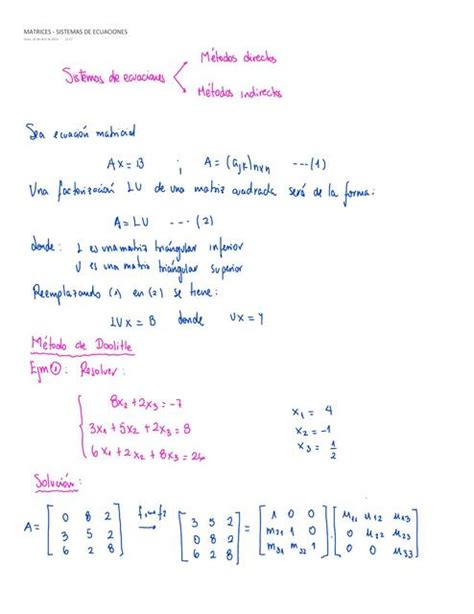 MATRICES - SISTEMAS DE ECUACIONES
Sistemas de ecuaciones < Métodos directos
Métodos indirectos
Sea ecuación matricial
AX = B ; A = (ajk)nxn --- (1)
Una factorización LU de una matriz cuadrada será de la forma:
A = LU --- (2)
donde: L es una matriz triángular inferior
U es una matriz triángular superior
Reemplazando (1) en (2) se tiene:
LUX = B donde UX = Y
Método de Doolitle
Ejm ①: Resolver:
8x2 + 2x3 = -7
3x1 + 5x2 + 2x3 = 8
6x1 + 2x2 + 8x3 = 26
x1 = 4
x2 = -1
x3 = 1/2
Solución:
A = [0 8 2; 3 5 2; 6 2 8] f1↔f2 → [3 5 2; 0 8 2; 6 2 8] = [1 0 0; m21 1 0; m31 m32 1] [u11 u12 u13; 0 u22 u23; 0 0 u33]